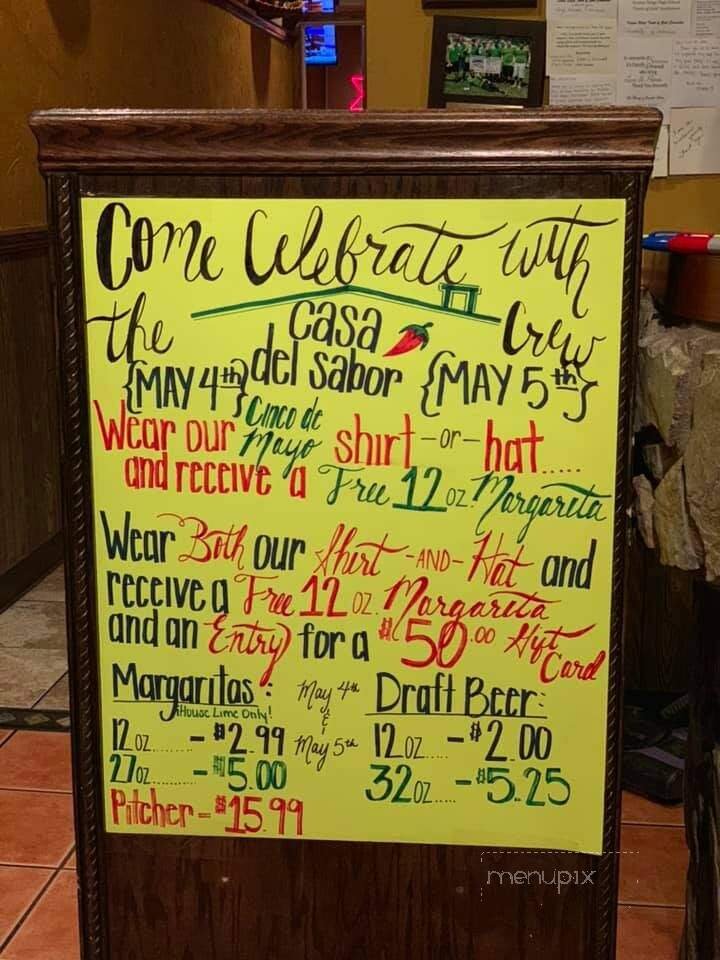 Come Celebrate with
the casa del sabor Crew
{MAY 4th} {MAY 5th}
Wear our Cinco de Mayo shirt -or- hat.....
and receive a Free 12 oz. Margarita
Wear Both our Shirt -AND- Hat and
receive a Free 12 oz. Margarita
and an Entry for a $50.00 Gift Card
Margaritas: May 4th & May 5th Draft Beer:
House Lime Only!
12 oz........ - $2.99 12 oz..... - $2.00
27oz.......... - $5.00 32oz..... - $5.25
Pitcher - $15.99
menupix